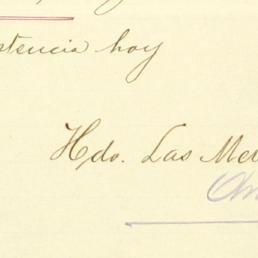 stencia hoy
Hdo. Las Mer